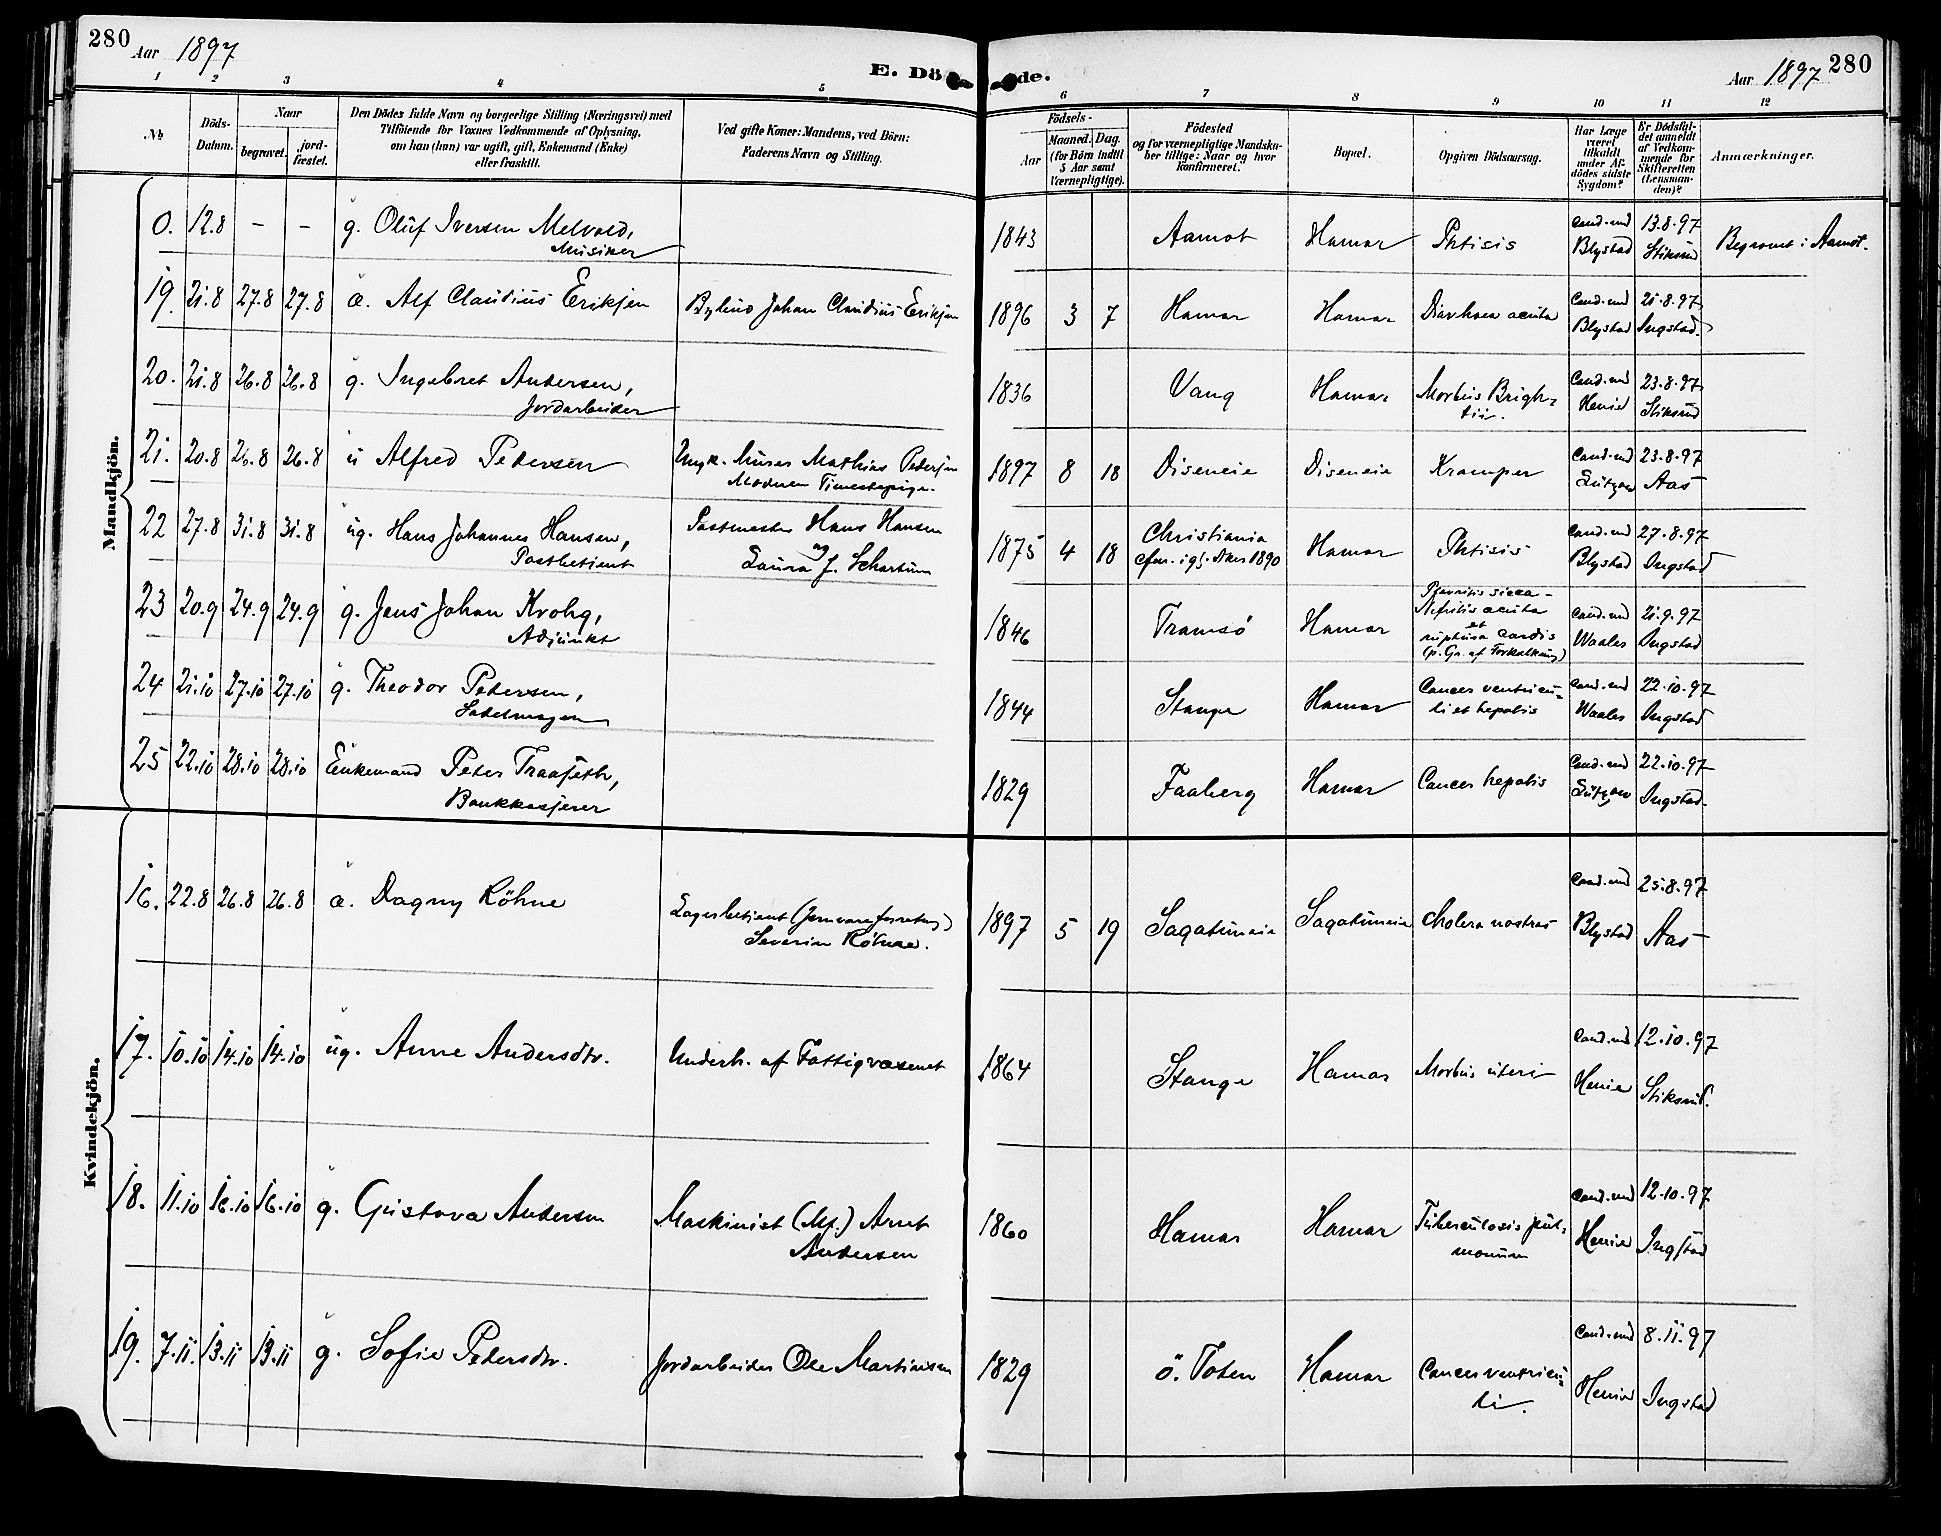 280
Aar 1897
E. Dö de.
Aar 1897 280
1 2 3 4 5 6 7 8 9 10 11 12
No.
Döds-
Datum.
Naar
begravet.
jord-
fæstet.
Den Dödes fulde Navn og borgerlige Stilling (Næringsvei) med
Tilföiende for Voxnes Vedkommende af Oplysning,
om han (hun) var ugift, gift, Enkemand (Enke)
eller fraskilt.
Ved gifte Koner: Mandens, ved Börn:
Faderens Navn og Stilling.
Födsels-
Aar
Maaned. Dag.
(for Börn indtil
5 Aar samt
Værnepligtige).
Födested
og for værnepligtige Mandskа-
ber tillige: Naar og hvor
konfirmeret.
Bopæl.
Opgiven Dödsaarsag.
Har Læge
været
tilkaldt
under Af-
dödes sidste
Sygdom?
Er Dödsfal-
det anmeldt
af Vedkom-
mende for
Skifteretten
(Lensman-
den)?
Anmærkninger.
Mandkjön.
0. 12.8 - - g. Oluf Iversen Melvold, 1843 Aamot Hamar Phtisis Cand. med 13.8.97 Begravet i Aamot.
Musiker Blystad Stiksrud
19. 21.8 27.8 27.8 æ. Alf Claudius Eriksen Bybud Johan Claudius Eriksen 1896 3 7 Hamar Hamar Diarhoea acuta Cand. med 21.8.97
Blystad Ingstad.
20. 21.8 26.8 26.8 g. Ingebret Andersen, 1836 Vang Hamar Morbus Brigh- Cand. med 23.8.97
Jordarbeider tii. Henie Stiksrud
21. 20.8 26.8 26.8 u Alfred Petersen Ungk. Murer Mathias Petersen 1897 8 18 Diseneie Diseneie Kramper Cand. med 23.8.97
Moderen Lützow Aas
22 27.8 31.8 31.8 ug. Hans Johannes Hansen, Postmester Hans Hansen 1875 4 18 Christiania Hamar Phtisis Cand. med 27.8.97
Postbetjent og Laura J. Schartum Aker 1890 Blystad Ingstad
23 20.9 24.9 24.9 g. Jens Johan Krohg, 1846 Tromsö Hamar sicca - Cand. med 21.9.97
Adjunkt Nefritis acuta
et
ruptura cordis Waaler Ingstad
(p. Gr. af Forkalkning)
24 21.10 27.10 27.10 g. Theodor Petersen, 1844 Stange Hamar Cancer ventricu- Cand. med 22.10.97
Sadelmager li et hepatis Waaler Ingstad
25 22.10 28.10 28.10 Enkemand Peter Traaseth, 1829 Faaberg Hamar Cancer hepatis Cand. med 22.10.97
Bankkasserer Lützow Ingstad.
Kvindekjön.
16. 22.8 26.8 26.8 æ. Dagny Röhne Lagerbetjent (Jernvareforretng) 1897 5 19 Sagatuneie Sagatuneie Cholera nostras Cand. med 25.8.97
Severin Röhne. Blystad Aas
17. 10.10 14.10 14.10 ug. Anne Andersdtr. Underh. af Fattigvæsenet 1864 Stange Hamar Morbus uteri Cand. med 12.10.97
Henie Stiksrud.
18. 11.10 16.10 16.10 g. Gustava Andersen Maskinist (Mj.) Arnt 1860 Hamar Hamar Tuberculosis pul- Cand. med 12.10.97
Andersen monum Henie Ingstad
19. 7.11. 13.11 13.11 g. Sofie Petersdtr. Jordarbeider Ole Martinsen 1829 Ö. Toten Hamar Cancer ventricu- Cand. med 8.11.97
li. Henie Ingstad